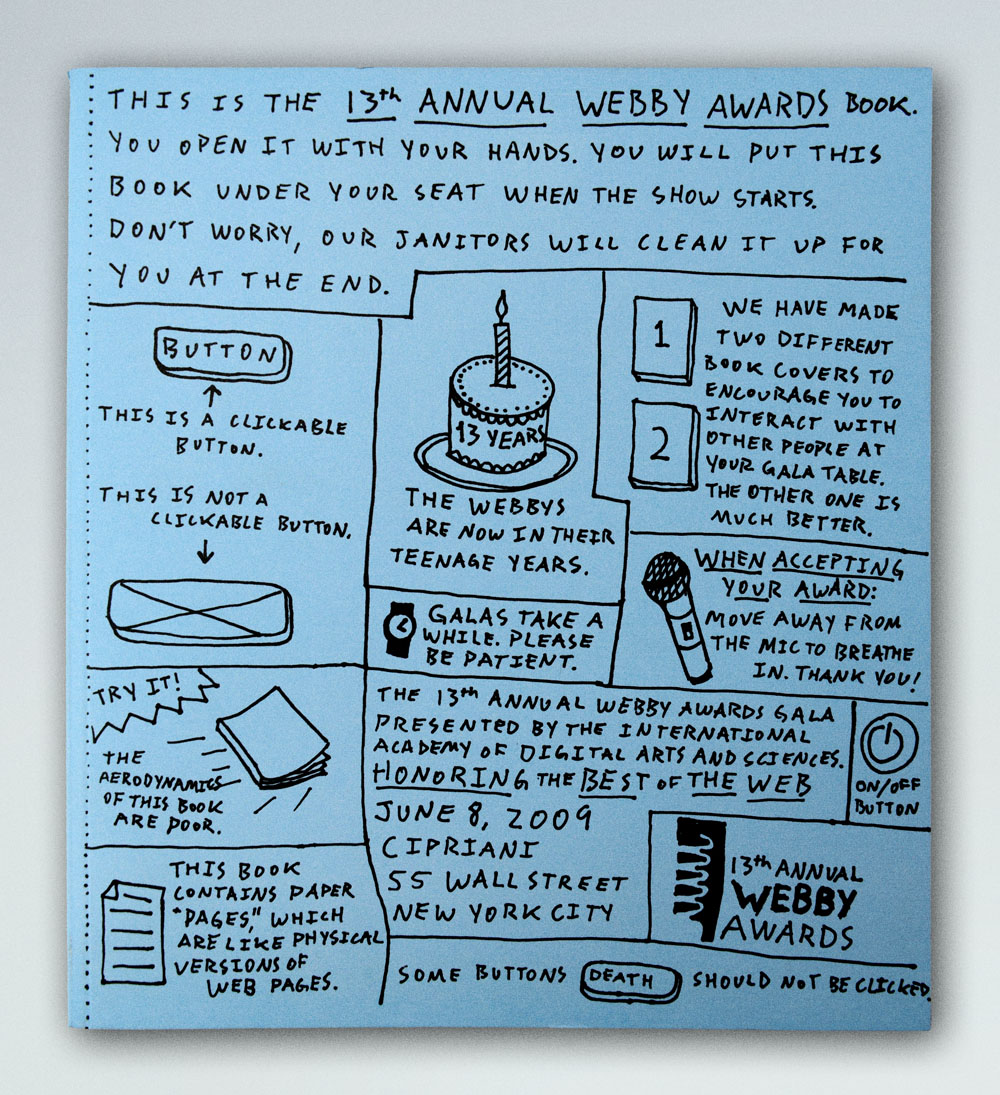 THIS IS THE 13th ANNUAL WEBBY AWARDS BOOK.
YOU OPEN IT WITH YOUR HANDS. YOU WILL PUT THIS
BOOK UNDER YOUR SEAT WHEN THE SHOW STARTS.
DON'T WORRY, OUR JANITORS WILL CLEAN IT UP FOR
YOU AT THE END.
BUTTON
THIS IS A CLICKABLE
BUTTON.
THIS IS NOT A
CLICKABLE BUTTON.
13 YEARS
THE WEBBYS
ARE NOW IN THEIR
TEENAGE YEARS.
1
2
WE HAVE MADE
TWO DIFFERENT
BOOK COVERS TO
ENCOURAGE YOU TO
INTERACT WITH
OTHER PEOPLE AT
YOUR GALA TABLE.
THE OTHER ONE IS
MUCH BETTER.
GALAS TAKE A
WHILE. PLEASE
BE PATIENT.
WHEN ACCEPTING
YOUR AWARD:
MOVE AWAY FROM
THE MIC TO BREATHE
IN. THANK YOU!
TRY IT!
THE
AERODYNAMICS
OF THIS BOOK
ARE POOR.
THE 13th ANNUAL WEBBY AWARDS GALA
PRESENTED BY THE INTERNATIONAL
ACADEMY OF DIGITAL ARTS AND SCIENCES.
HONORING THE BEST OF THE WEB
JUNE 8, 2009
CIPRIANI
55 WALL STREET
NEW YORK CITY
ON/OFF
BUTTON
13th ANNUAL
WEBBY
AWARDS
THIS BOOK
CONTAINS PAPER
"PAGES," WHICH
ARE LIKE PHYSICAL
VERSIONS OF
WEB PAGES.
SOME BUTTONS DEATH SHOULD NOT BE CLICKED.